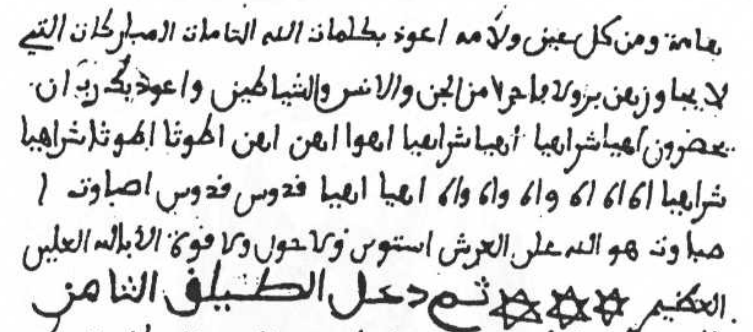 هامة ومن كل عين ولامة اعوذ بكلمات الله التامات المباركات التي
لا يجاوزهن بر ولا فاجر من الجن والانس والشياطين واعوذ بك رب ان
يحضرون اهيا شراهيا أهيا شراهيا اهوا اهن اهن اطوثا اطوثا شراهيا
شراهيا اه اه اه واه واه واه اهيا اهيا قدوس قدوس اصباوت ا
صباوت هو الله على العرش استوى ولا حول ولا قوة الا بالله العلي
العظيم ✡ ✡ ✡ ثم دخل الثامن